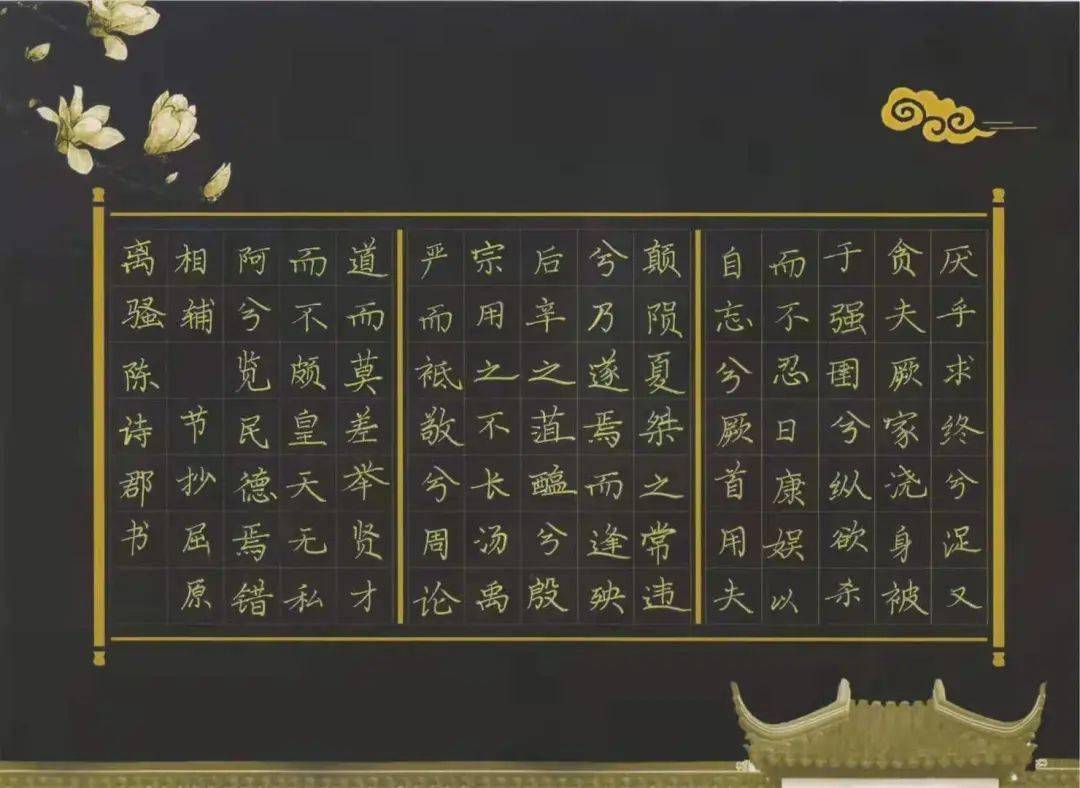 厌乎求终兮浞又
贪夫厥家浇身被
于强圉兮纵欲杀
而不忍日康娱以
自忘兮厥首用夫
颠陨夏桀之常违
兮乃遂焉而逢殃
后辛之菹醢兮殷
宗用之不长汤禹
严而祗敬兮周论
道而莫差举贤才
而不颇皇天无私
阿兮览民德焉错
相辅 节抄屈原
离骚陈诗郡书